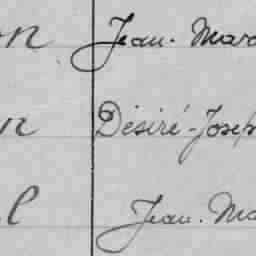 on Jean-Marc
n Désiré-Josep
l Jean-Ma